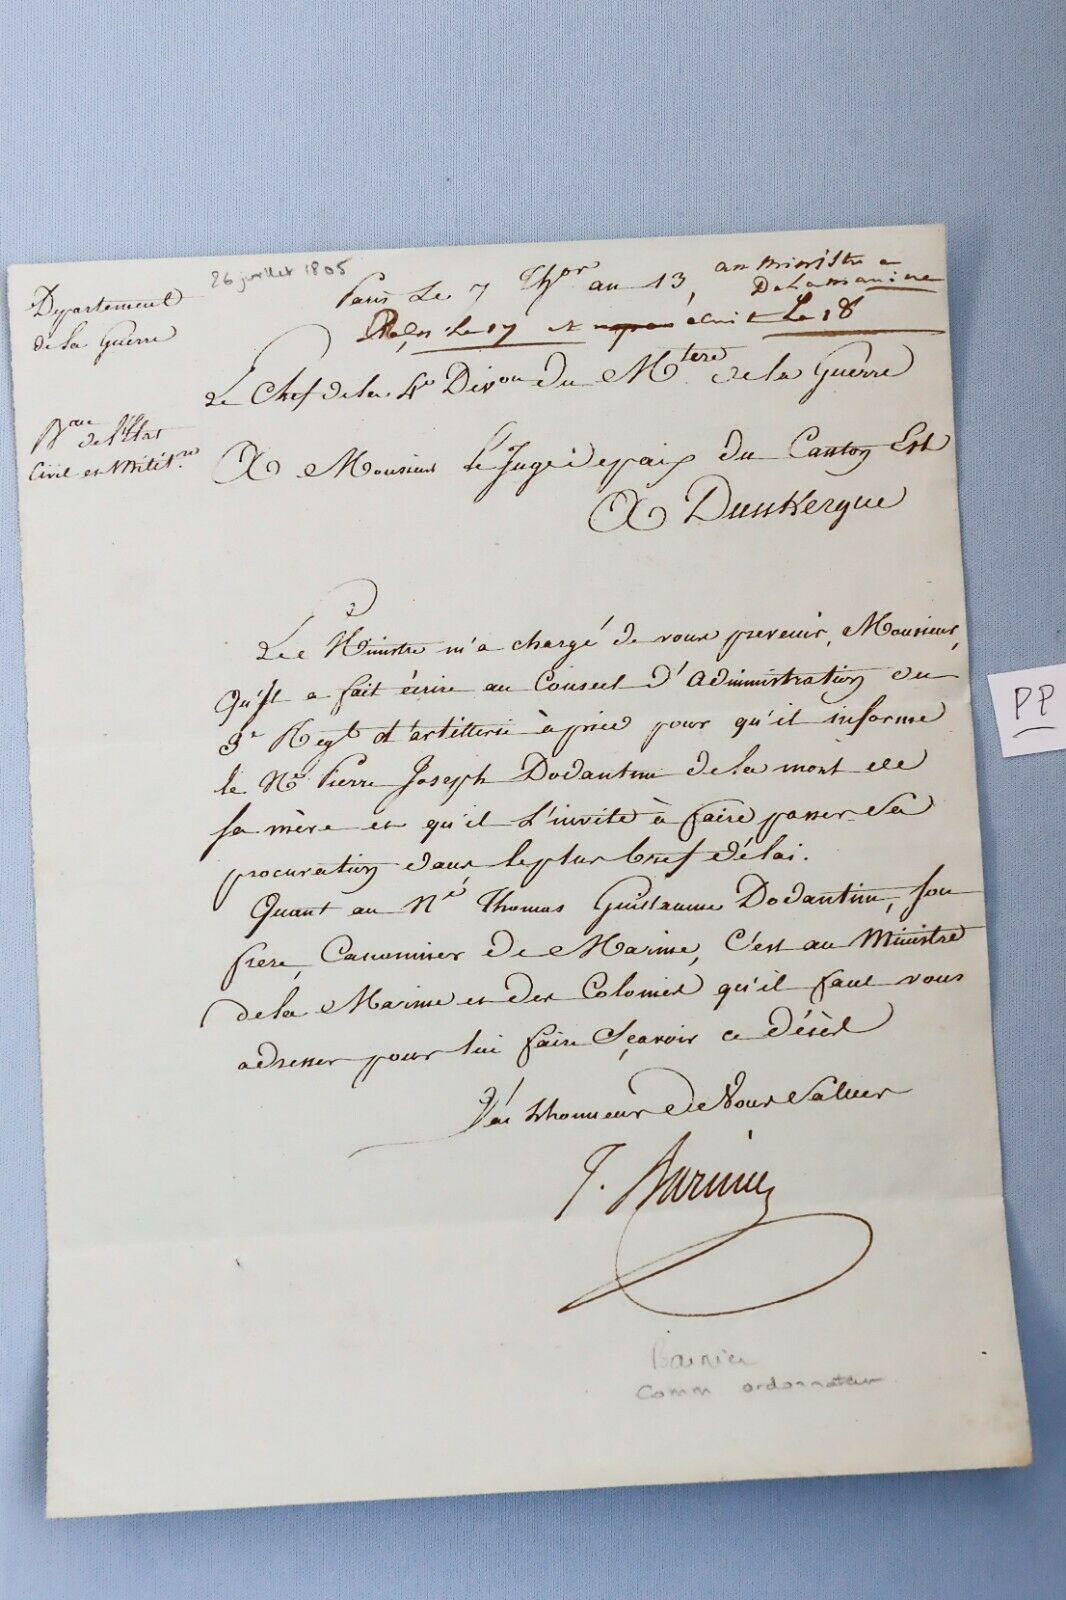 26 juillet 1805
Departement
de la Guerre
Paris Le 7 Thor an 13,
au Ministre
De La marine
Le 17 et écrit Le 18
Le Chef de la 4e Divon du Mtere de la Guerre
Brau
de l'Etat
Civil et Milit.re
A Monsieur le Juge de paix du Canton Est
A Dunkerque
Le Ministre m'a chargé de vous prevenir, Monsieur,
qu'Il a fait écrire au Conseil d'administration du
3e Regt d'artillerie à pied pour qu'il informe
le Né Pierre Joseph Dodantun de la mort de
sa mère et qu'il l'invite à faire passer sa
procuration dans le plus bref délai.
Quant au Né Thomas Guislaume Dodantun, son
frere, Canonnier de Marine, C'est au Ministre
de la Marine et des Colonies qu'il faut vous
adresser pour lui faire Sçavoir ce décès
J'ai L'honneur de Vous Saluer
T. Barnier
Barnier
Comm ordonnateur
PP